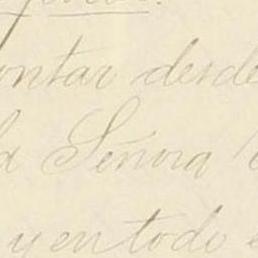 ontar desde
la Señora
y en todo